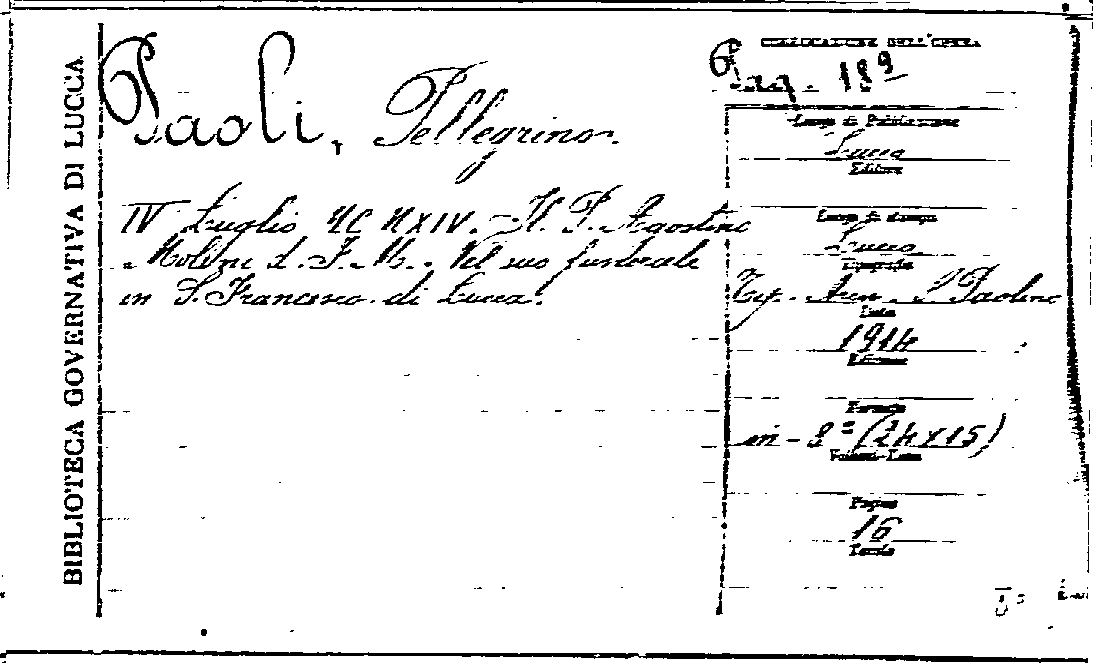 BIBLIOTECA GOVERNATIVA DI LUCCA
Paoli, Pellegrino.
IV Luglio MCMXIV. - Al P. Agostino
Molini d. F. M. Nel suo funerale
in S. Francesco di Lucca.
COLLOCAZIONE DELL'OPERA
18⁹
Luogo di Pubblicazione
Lucca
Editore
Luogo di stampa
Lucca
Tipografia
Tip. S. Paolino
Data
1914
Edizione
Formato
in-8º (24x15)
Pagine
16
Tavole